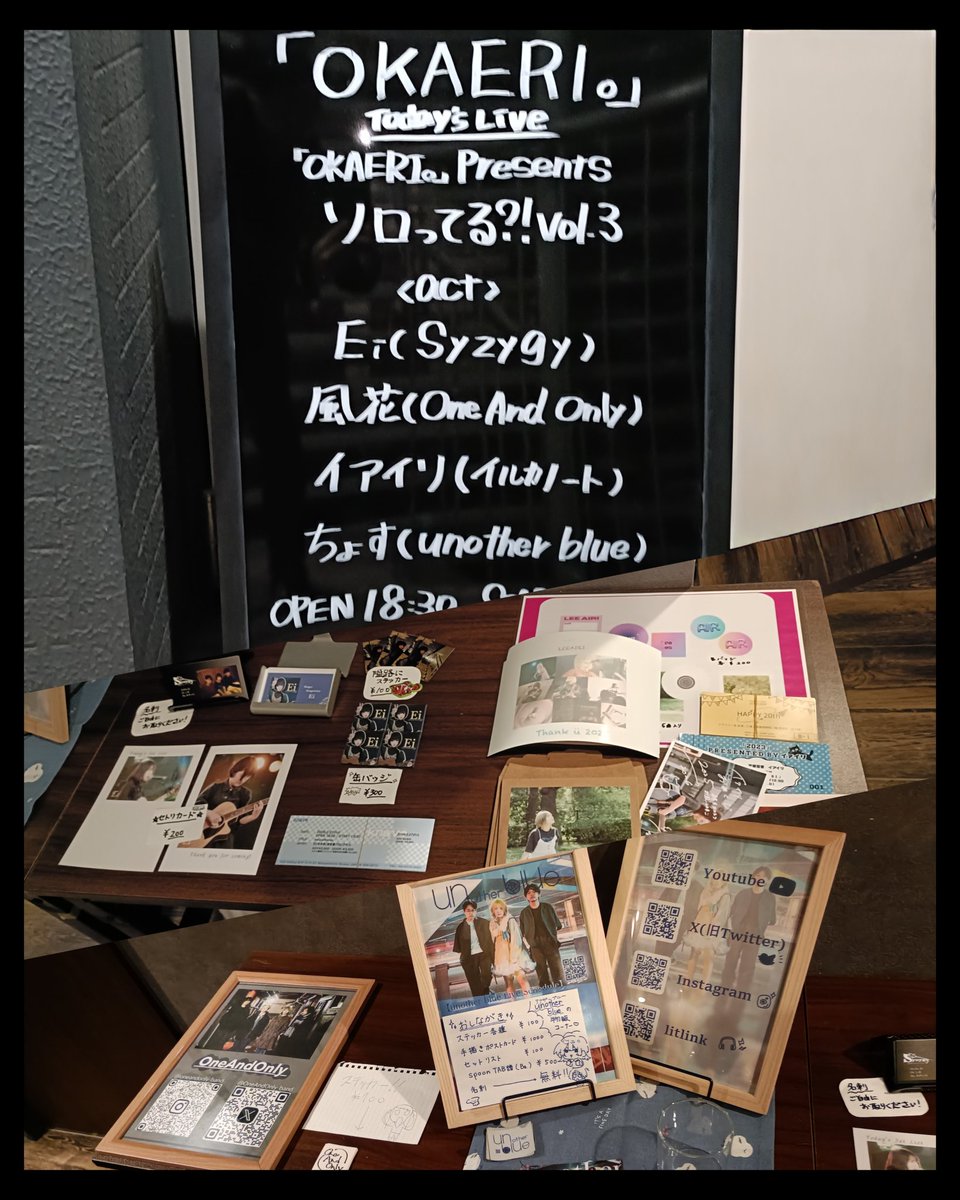 「OKAERI。」
Today's Live
「OKAERI。」Presents
ソロってる?!vol.3
<act>
Ei(Syzygy)
風花(One And Only)
イアイリ(イルカノート)
ちょす(unother blue)
OPEN 18:30
名刺
ご自由に
お取りください!
Ei
Ei
ステッカー
¥100
Ei
Ei
缶バッジ
¥300
セトリカード
¥200
Thank you for coming!
LEE AIRI
缶バッジ
Thank u 202
HAPPY 20th
2023
PRESENTED BY イアイリ
001
unother blue
【unother blue Live Schedule】
おしながき
ステッカー各種 ¥100
手描きポストカード ¥1000
セットリスト ¥100
spoon TAB譜(Ba) ¥500
名刺 無料!!
unother
blue.の
物販
コーナー
Youtube
X(旧Twitter)
Instagram
litlink
OneAndOnly
@OneAndOnly_band
ステッカー
¥100
One
And
Only
unother
blue
Syzygy
名刺
ご自由に
お取りください!
Today's Set List